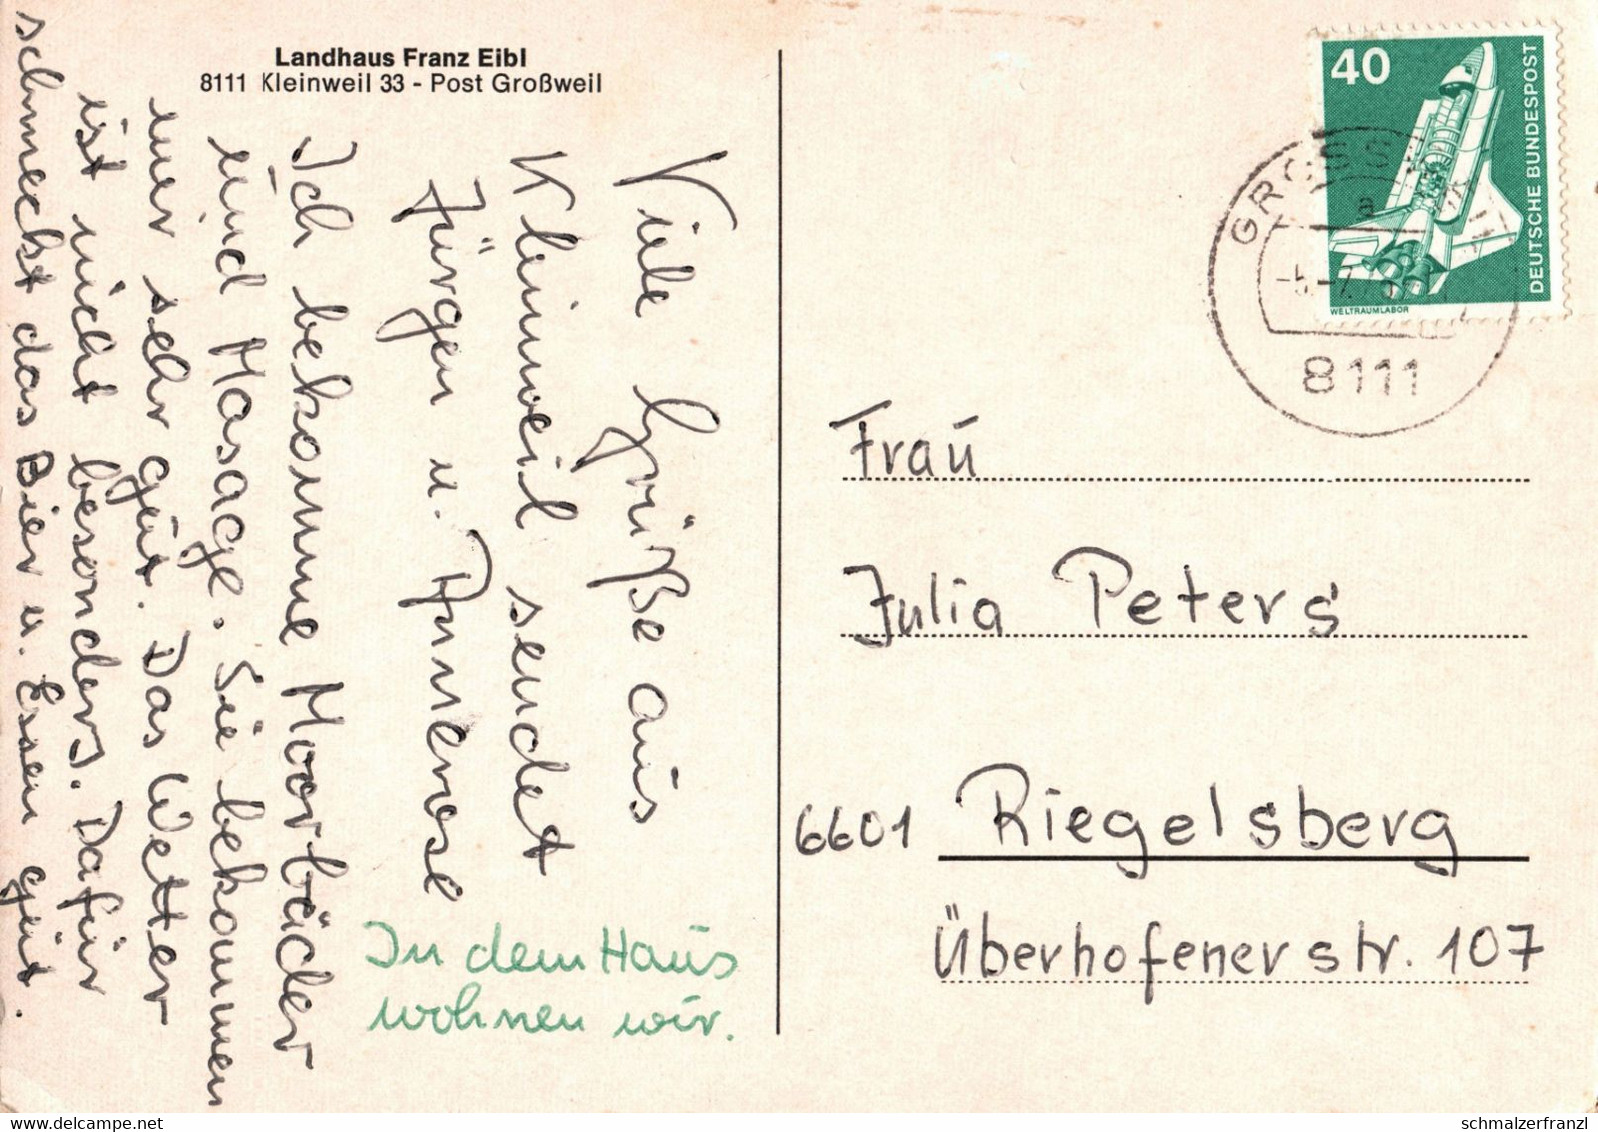 Landhaus Franz Eibl
8111 Kleinweil 33 - Post Großweil
Viele Grüße aus
Kleinweil sendet
Jürgen u. Annerose
Ich bekomme Moorbäder
und Masage. Sie bekommen
mer sehr gut. Das Wetter
ist nicht besonders. Dafür
schmeckt das Bier u. Essen gut.
In dem Haus
wohnen wir.
40
DEUTSCHE BUNDESPOST
WELTRAUMLABOR
a
8111
Frau
Julia Peters
6601 Riegelsberg
Überhofenerstr. 107
delcampe.net
schmalzerfranzl